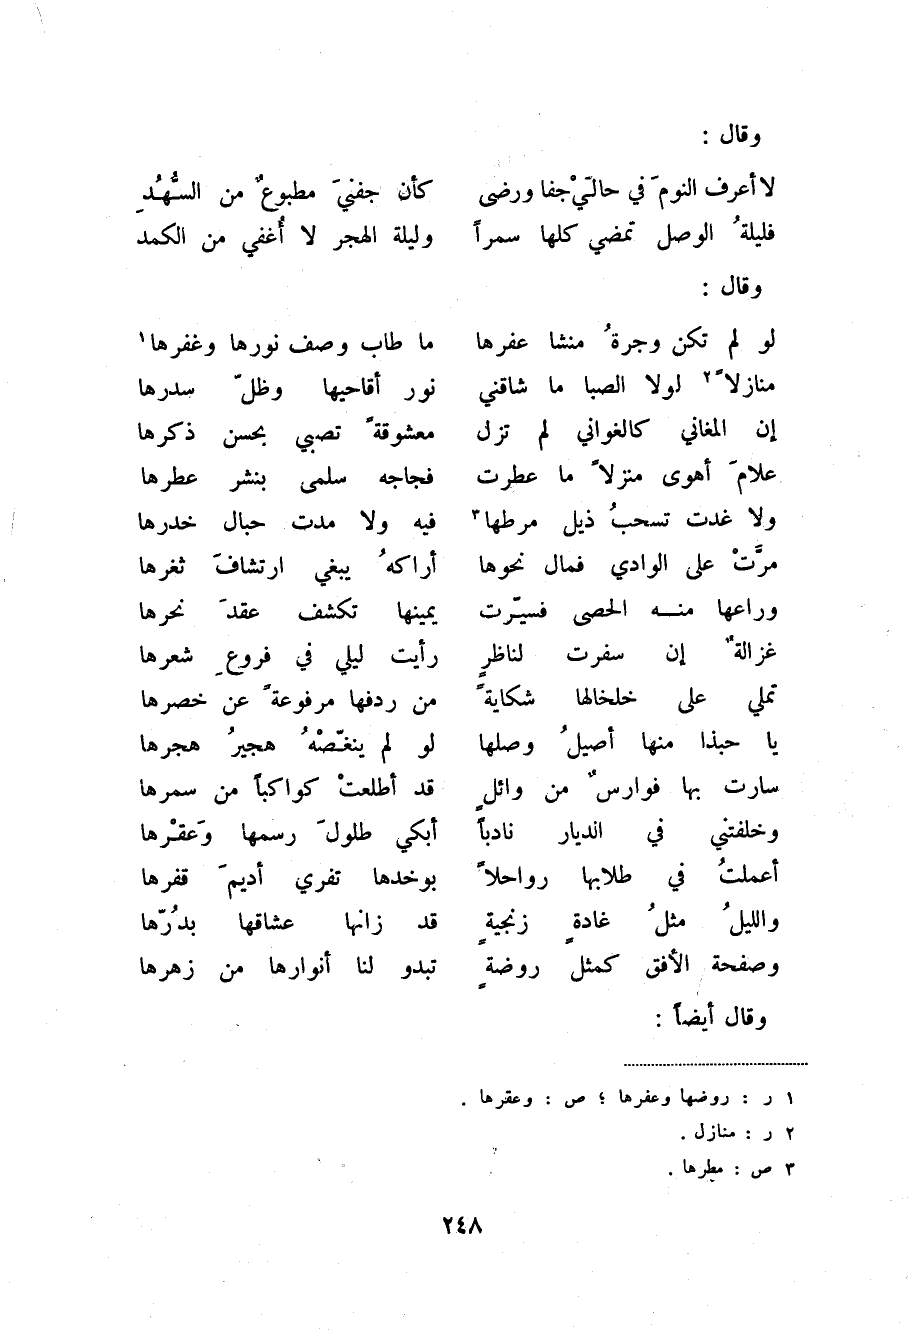 وقال :
لا أعرف النومَ في حاليْ جفا ورضى كأن جفنيَ مطبوعٌ من السُّهُدِ
فليلةُ الوصل تمضي كلها سمراً وليلة الهجر لا أُغفي من الكمد
وقال :
لو لم تكن وجرةُ منشا عفرها ما طاب وصف نورها وغفرها١
منازلاً٢ لولا الصبا ما شاقني نور أقاحيها وظلّ سدرها
إن المغاني كالغواني لم تزل معشوقةً تصبي بحسن ذكرها
علامَ أهوى منزلاً ما عطرت فجاجه سلمى بنشر عطرها
ولا غدت تسحبُ ذيل مرطها٣ فيه ولا مدت حبال خدرها
مرَّتْ على الوادي فمال نحوها أراكهُ يبغي ارتشافَ ثغرها
وراعها منه الحصى فسيّرت يمينها تكشف عقدَ نحرها
غزالةٌ إن سفرت لناظرٍ رأيت ليلي في فروعِ شعرها
تملي على خلخالها شكايةً من ردفها مرفوعةً عن خصرها
يا حبذا منها أصيلُ وصلها لو لم ينغّصْهُ هجيرُ هجرها
سارت بها فوارسٌ من وائلٍ قد أطلعتْ كواكباً من سمرها
وخلفتني في الديار نادباً أبكي طلولَ رسمها وَعقْرها
أعملتُ في طلابها رواحلاً بوخدها تفري أديمَ قفرها
والليلُ مثلُ غادةٍ زنجيةٍ قد زانها عشاقها بدُرّها
وصفحة الأفق كمثل روضةٍ تبدو لنا أنوارها من زهرها
وقال أيضاً :
١ ر : روضها وعفرها ؛ ص : وعقرها .
٢ ر : منازل .
٣ ص : مطرها .
٢٤٨